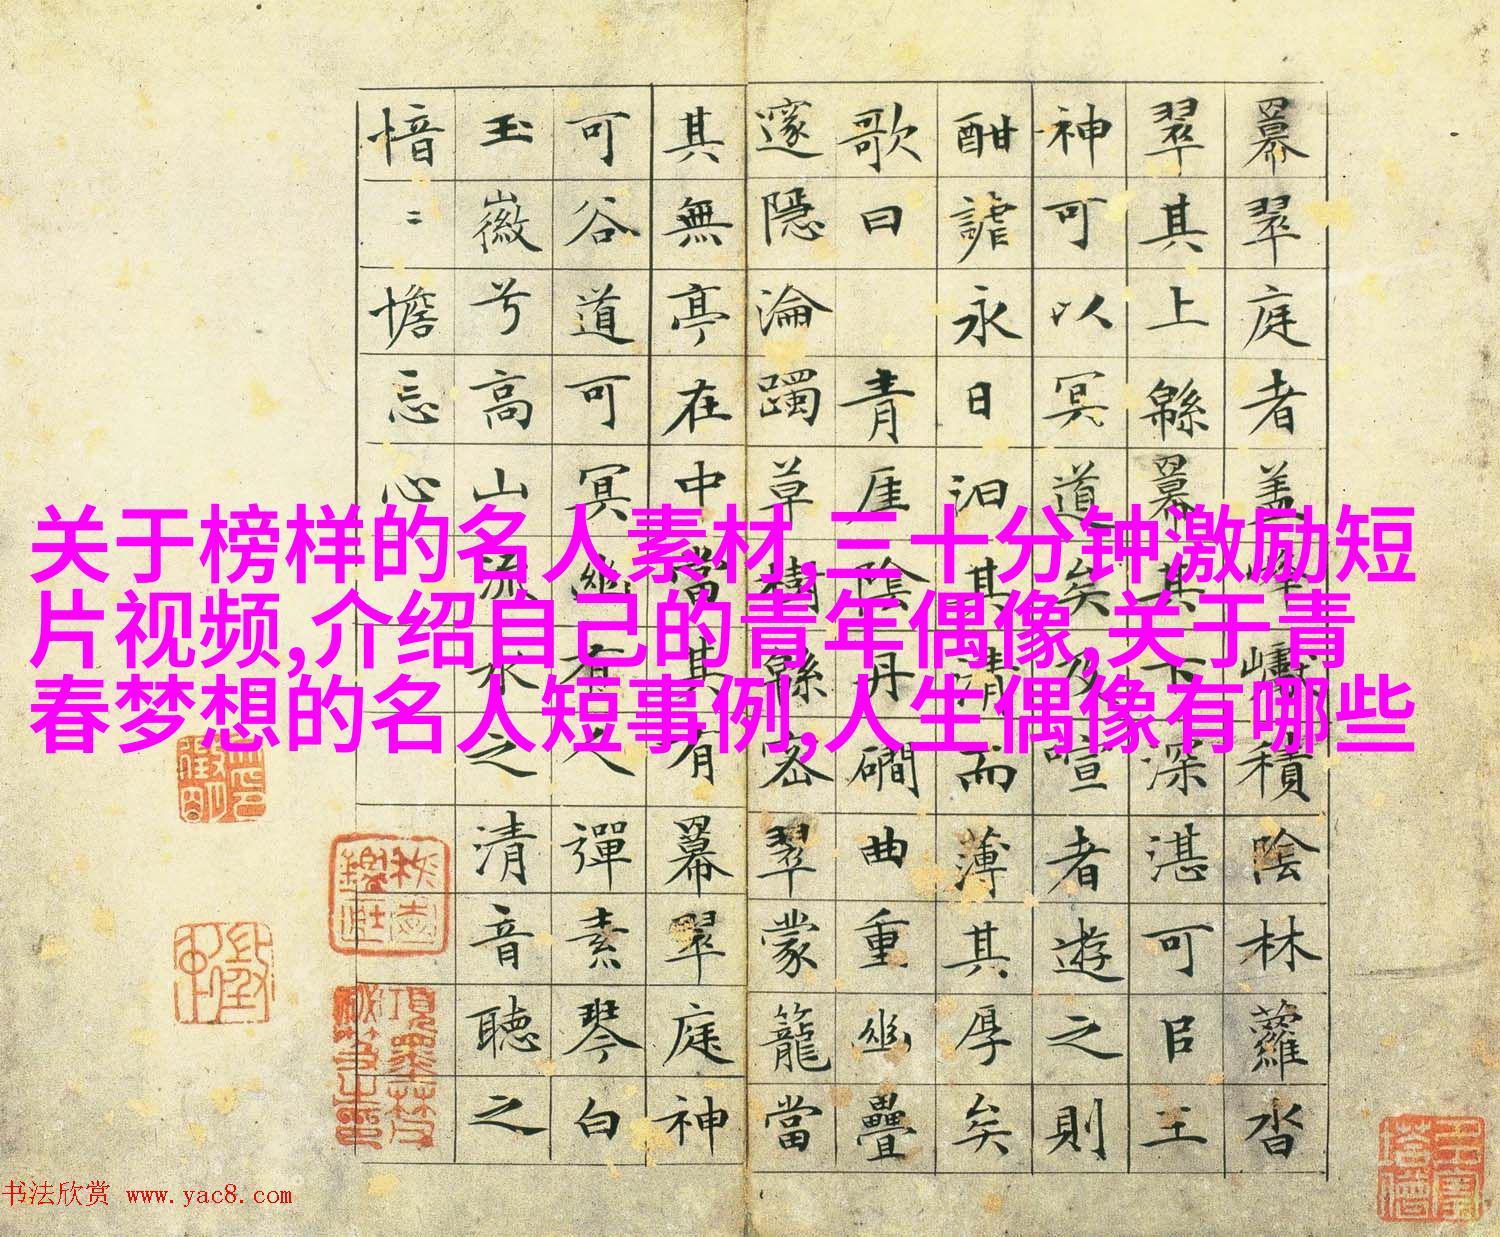 羃翠庭者盖峰巘積陰林蘿沓
翠其上緜羃其下深湛可㠯王
神可以冥道矣及喧者遊之則
酣謔永日汨其清而薄其厚矣
歌曰 青厓陰丹磵曲重幽疊
邃隱淪躅草樹緜密翠蒙籠當
其無亭在中當其有羃翠庭神
可谷道可冥幽有人彈素琴白
玉徽兮高山流水之清音聽之
愔〻憺忘心
关于榜样的名人素材,三十分钟激励短
片视频,介绍自己的青年偶像,关于青
春梦想的名人短事例,人生偶像有哪些
书法欣赏 www.yac8.com